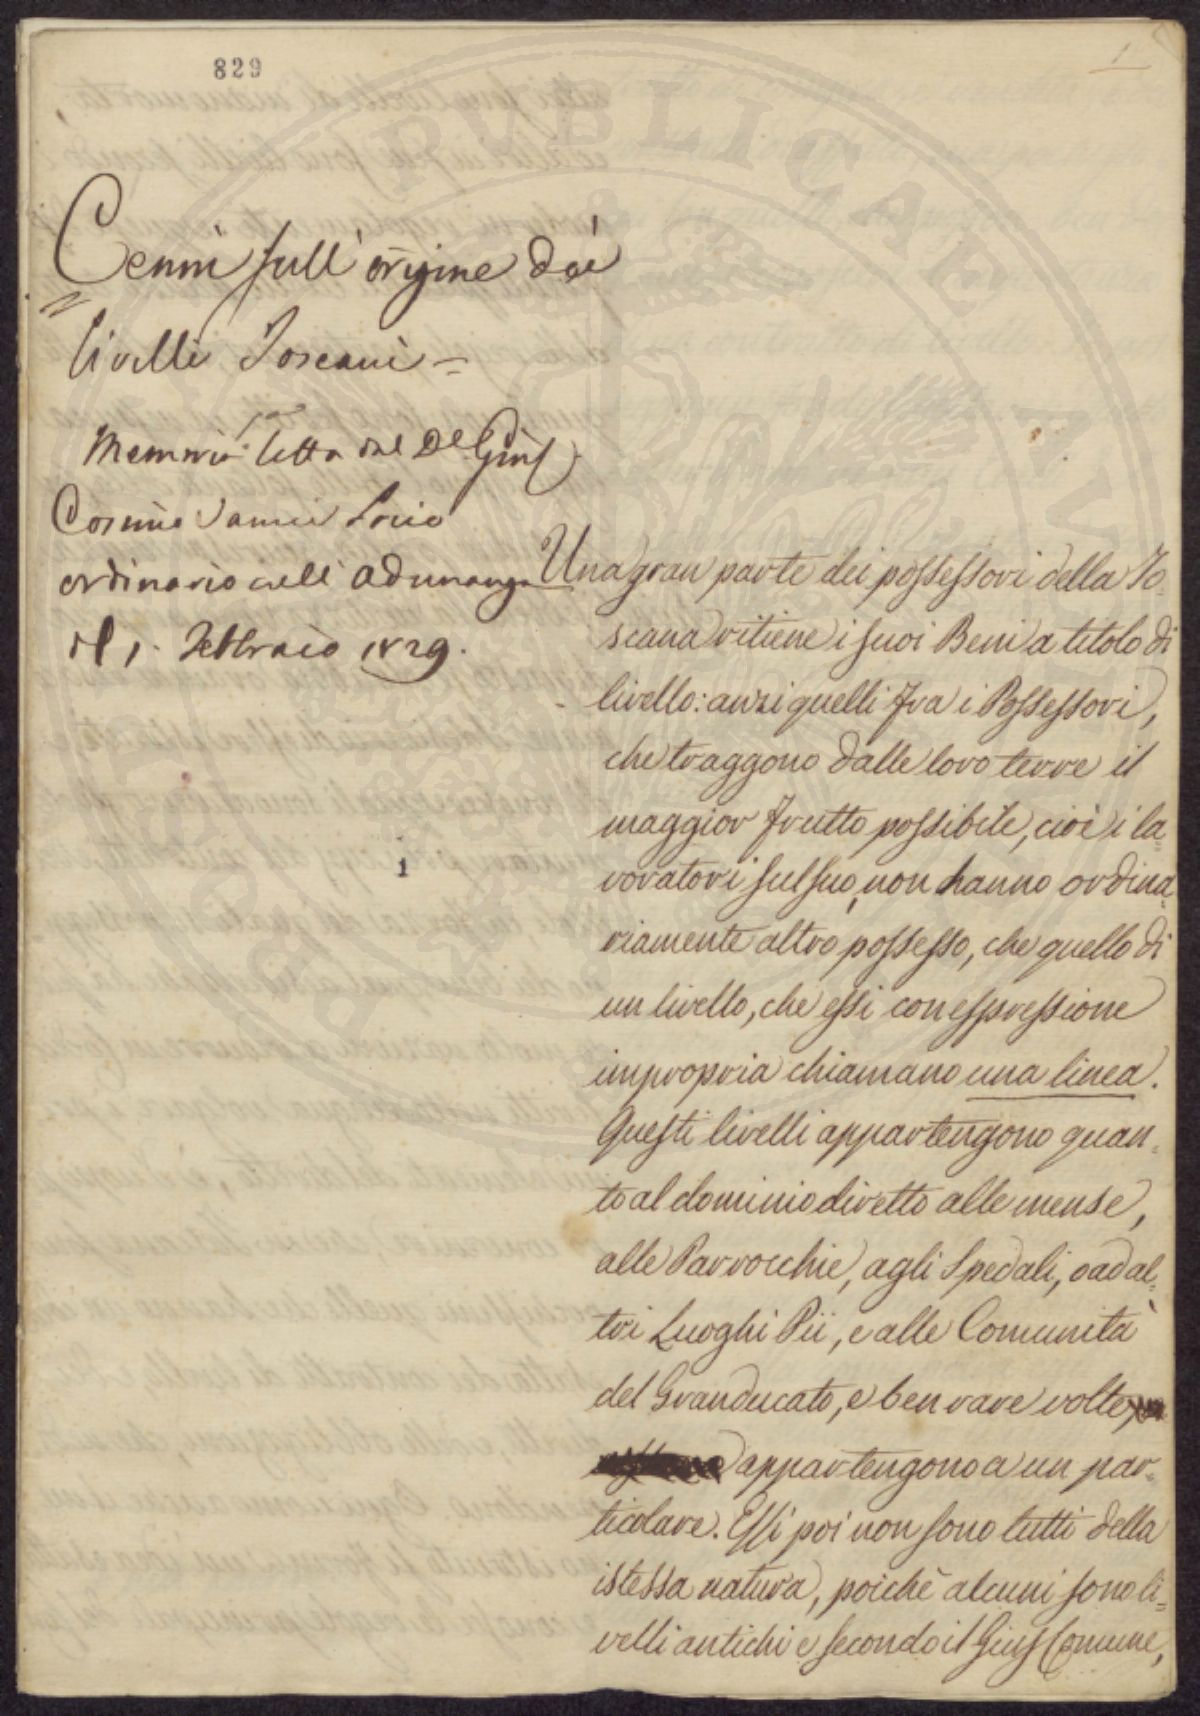 829
1
Cenni sull'origine dei
livelli Toscani =
Memoria letta dal
Cosimo Vanni Socio
ordinario nell'adunanza
del 1. Febbraio 1829.
1
Una gran parte dei possessori della To-
scana ritiene i suoi Beni a titolo di
livello: anzi quelli fra i Possessori,
che traggono dalle loro terre il
maggior frutto possibile, cioè i la-
voratori sul suo, non hanno ordina-
riamente altro possesso, che quello di
un livello, che essi con espressione
impropria chiamano una linea.
Questi livelli appartengono quan-
to al dominio diretto alle mense,
alle Parrocchie, agli Spedali, o ad al-
tri Luoghi Pii, e alle Comunità
del Granducato, e ben rare volte
appartengono a un par-
ticolare. Essi poi non sono tutti della
istessa natura, poichè alcuni sono li-
velli antichi e secondo il Gius Comune,